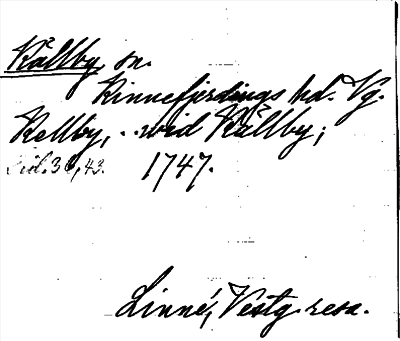 Källby, sn.
Kinnefjerdings hd. Vg.
Kellby, .. wid Källby;
Sid. 36, 43. 1747.
Linné, Vestg. resa.